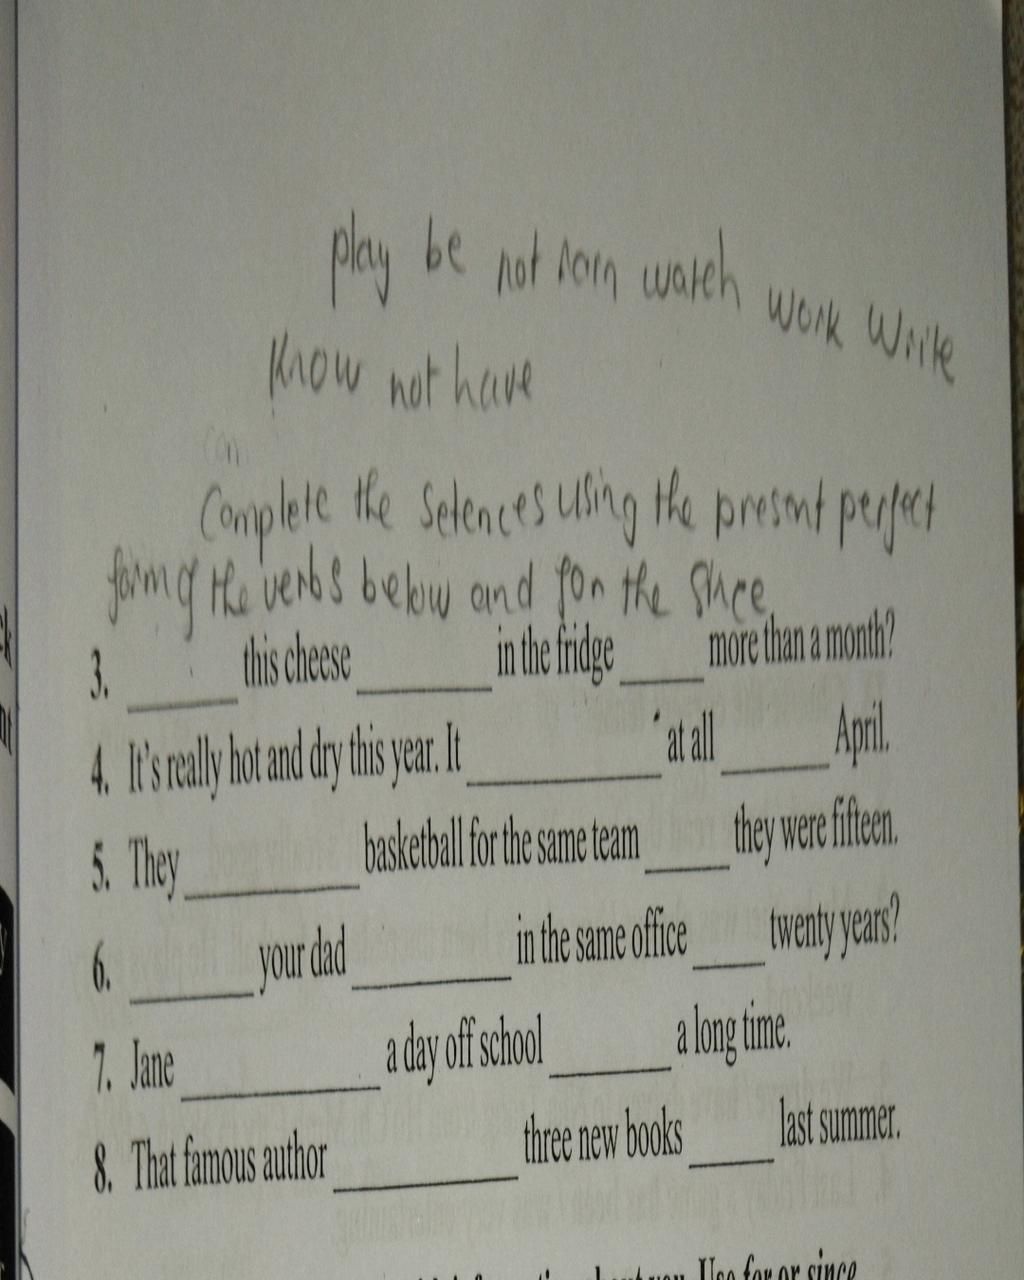 play be not rain watch work write
know not have
Complete the Setences using the present perfect
form of the verbs below and for the since
3. ______ this cheese ______ in the fridge ______ more than a month?
4. It's really hot and dry this year. It ______ at all ______ April.
5. They ______ basketball for the same team ______ they were fifteen.
6. ______ your dad ______ in the same office ______ twenty years?
7. Jane ______ a day off school ______ a long time.
8. That famous author ______ three new books ______ last summer.
Use for or since